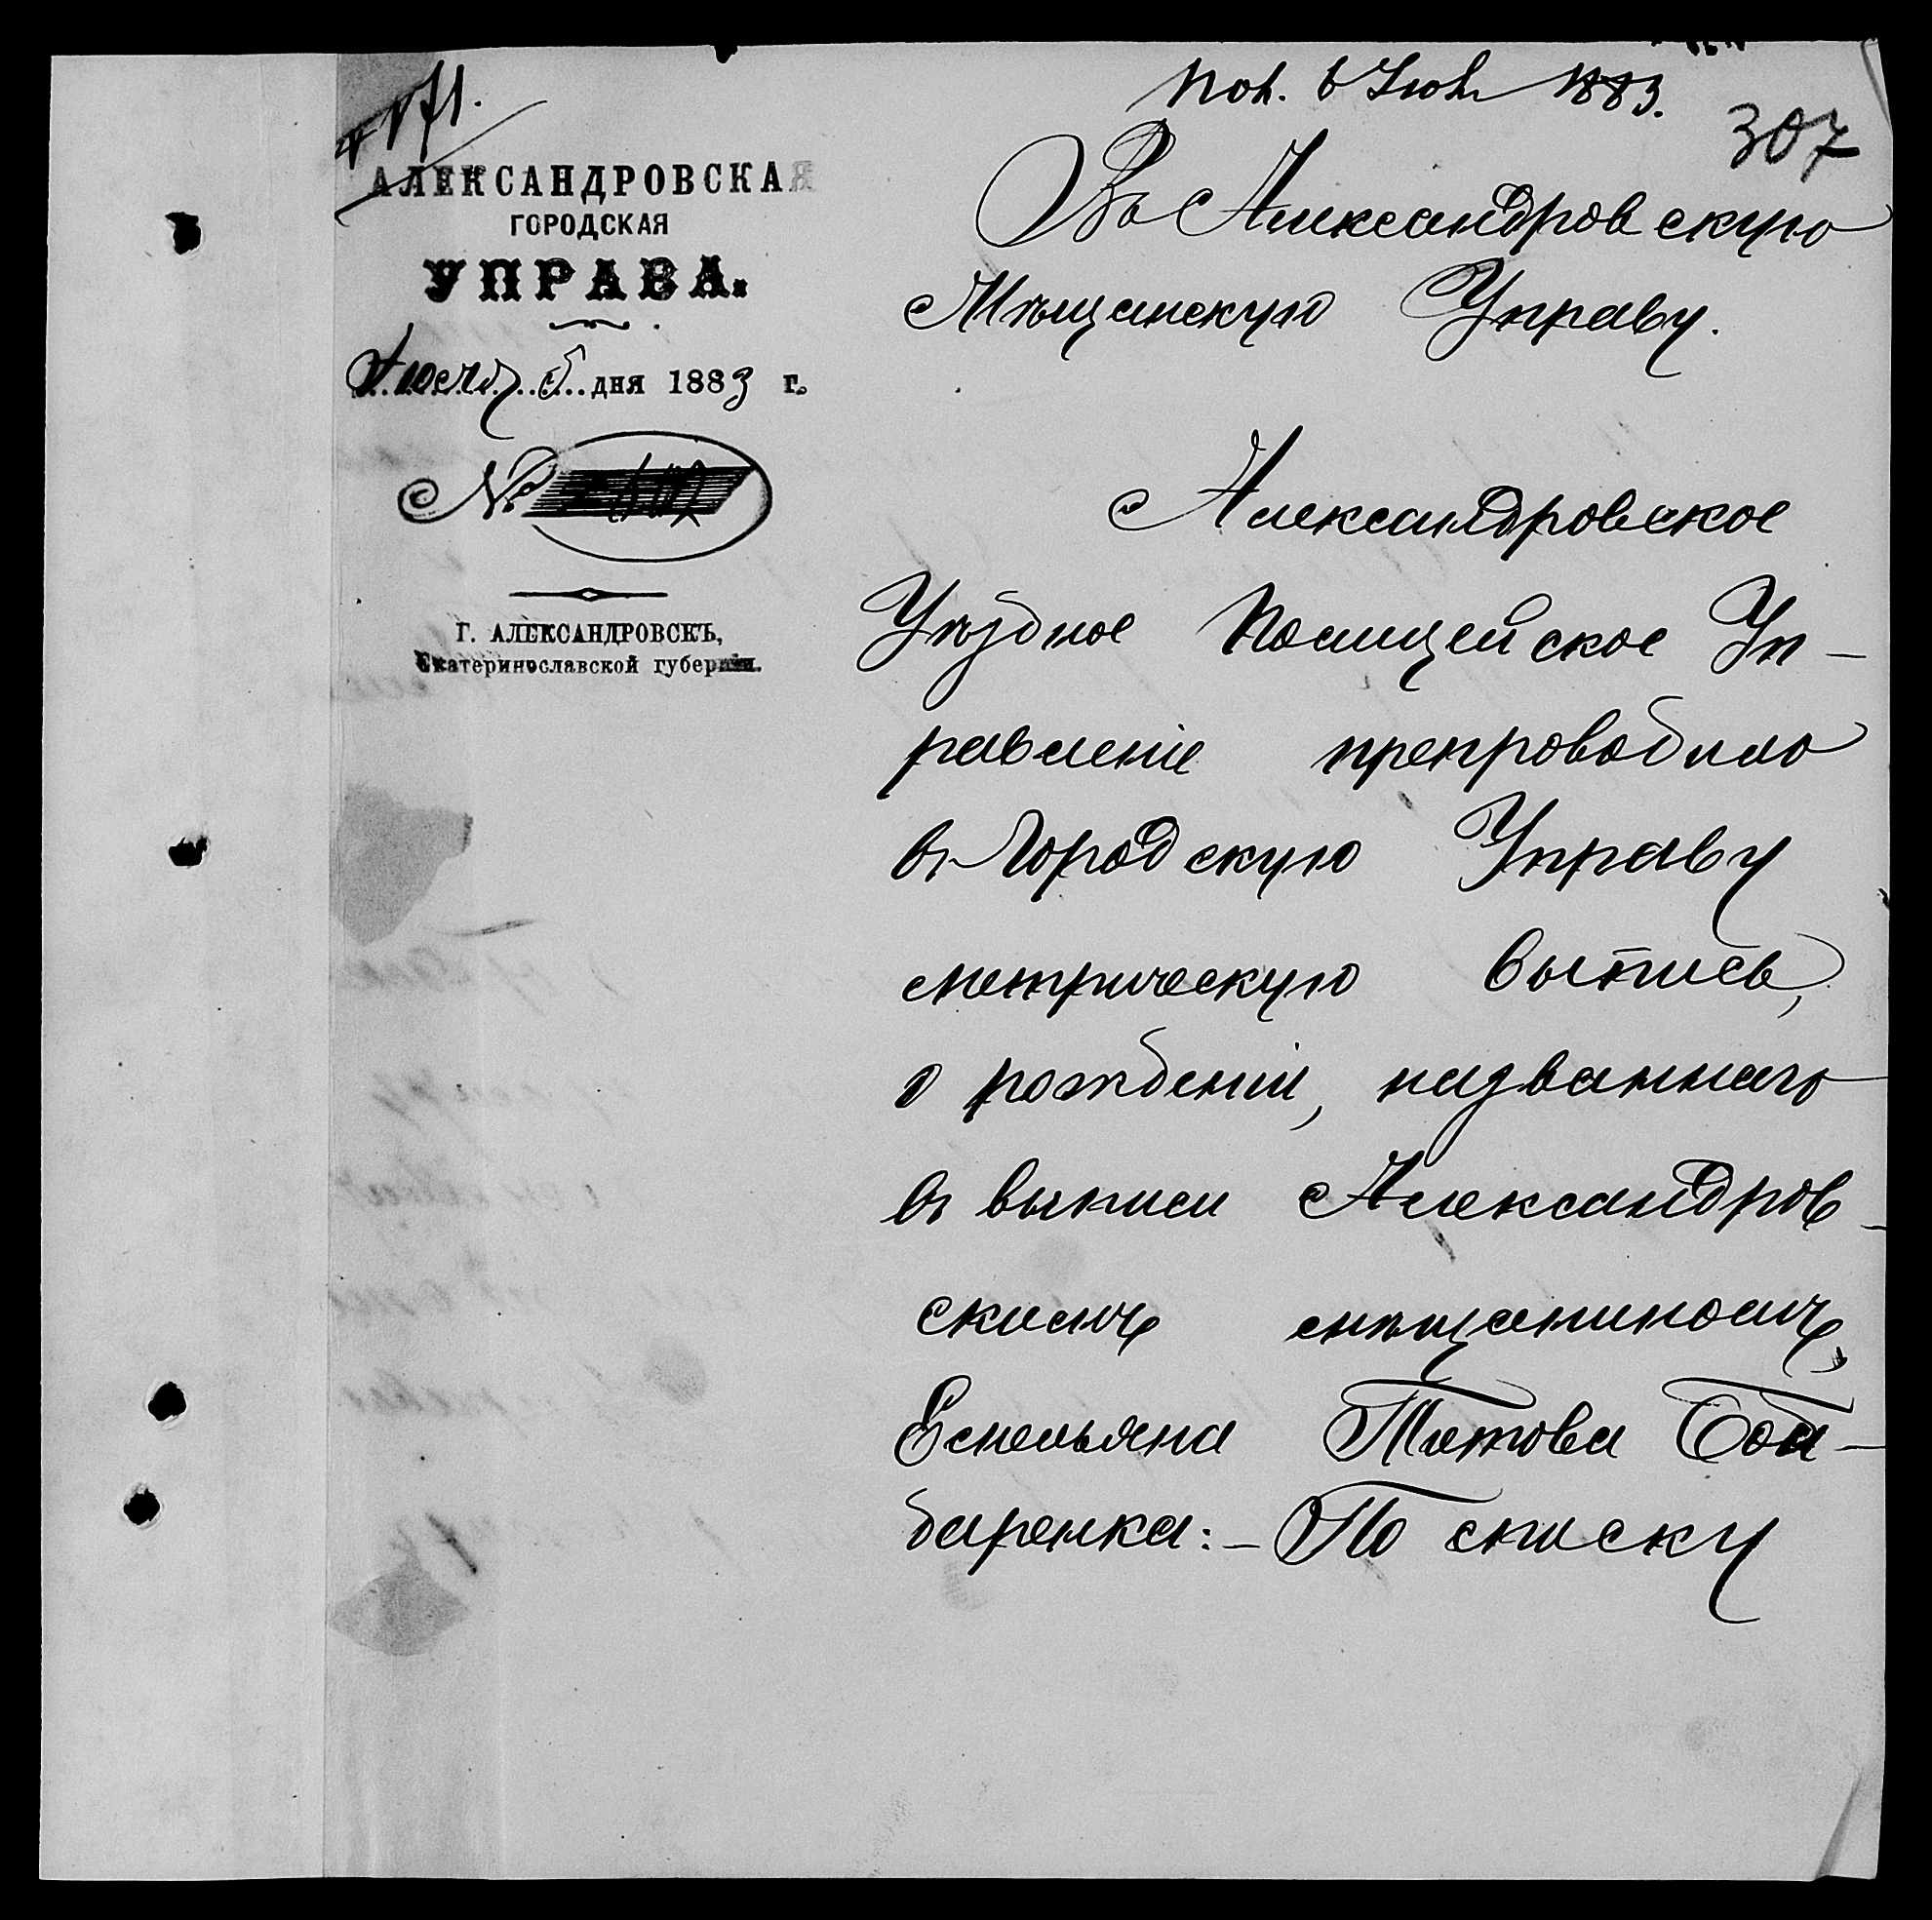 № 171.
АЛЕКСАНДРОВСКАЯ
ГОРОДСКАЯ
УПРАВА.
5 дня 1883 г.
№
Г. АЛЕКСАНДРОВСКЪ,
Екатеринославской губерніи.
Пол. 6 Іюл 1883.
307
Въ Александровскую
Мѣщанскую Управу.
Александровское
Уѣздное Полицейское Уп-
равленіе препроводило
въ Городскую Управу
метрическую выпись,
о рожденіи, названнаго
въ выписи Александров-
скимъ мѣщаниномъ,
Емельяна Титова Бой-
баренка:- По списку